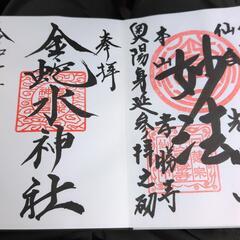 奉拝
金蛇水神社
令和二
仙台
妙法
奥陽身延参拝之砌
本山
孝勝寺